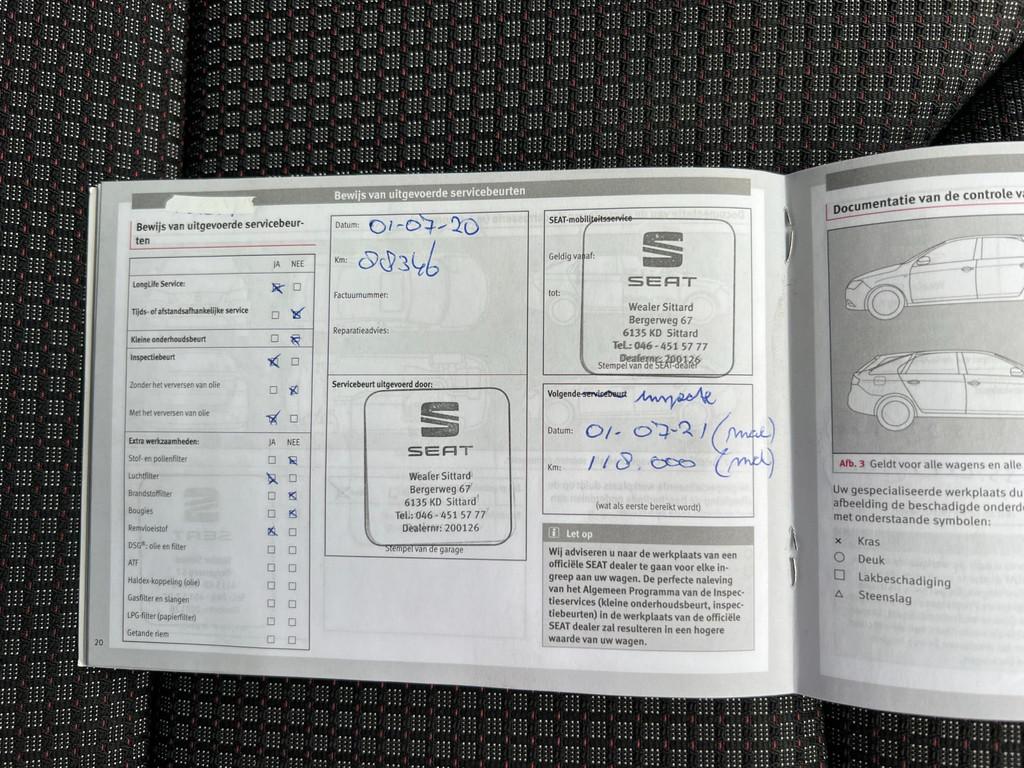 Bewijs van uitgevoerde servicebeurten
Bewijs van uitgevoerde servicebeur-
ten
JA NEE
LongLife Service:
Tijds- of afstandsafhankelijke service
Kleine onderhoudsbeurt
Inspectiebeurt
Zonder het verversen van olie
Met het verversen van olie
Extra werkzaamheden: JA NEE
Stof- en pollenfilter
Luchtfilter
Brandstoffilter
Bougies
Remvloeistof
DSG®: olie en filter
ATF
Haldex-koppeling (olie)
Gasfilter en slangen
LPG-filter (papierfilter)
Getande riem
20
Datum: 01-07-20
Km: 88346
Factuurnummer:
Reparatieadvies:
Servicebeurt uitgevoerd door:
SEAT
Wealer Sittard
Bergerweg 67
6135 KD Sittard
Tel.: 046 - 451 57 77
Dealernr: 200126
Stempel van de garage
SEAT-mobiliteitsservice
Geldig vanaf:
tot:
SEAT
Wealer Sittard
Bergerweg 67
6135 KD Sittard
Tel.: 046 - 451 57 77
Dealernr: 200126
Stempel van de SEAT-dealer
Volgende servicebeurt
Datum: 01-07-21 (max)
Km: 118.000
(wat als eerste bereikt wordt)
i Let op
Wij adviseren u naar de werkplaats van een
officiële SEAT dealer te gaan voor elke in-
greep aan uw wagen. De perfecte naleving
van het Algemeen Programma van de Inspec-
tieservices (kleine onderhoudsbeurt, inspec-
tiebeurten) in de werkplaats van de officiële
SEAT dealer zal resulteren in een hogere
waarde van uw wagen.
Documentatie van de controle va
Afb. 3 Geldt voor alle wagens en alle
Uw gespecialiseerde werkplaats du
afbeelding de beschadigde onderde
met onderstaande symbolen:
× Kras
○ Deuk
□ Lakbeschadiging
△ Steenslag